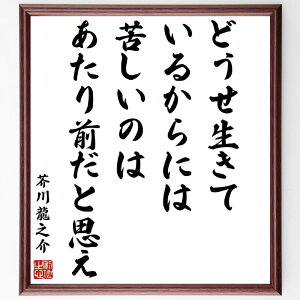 どうせ生きて
いるからには
苦しいのは
あたり前だと思え
芥川龍之介